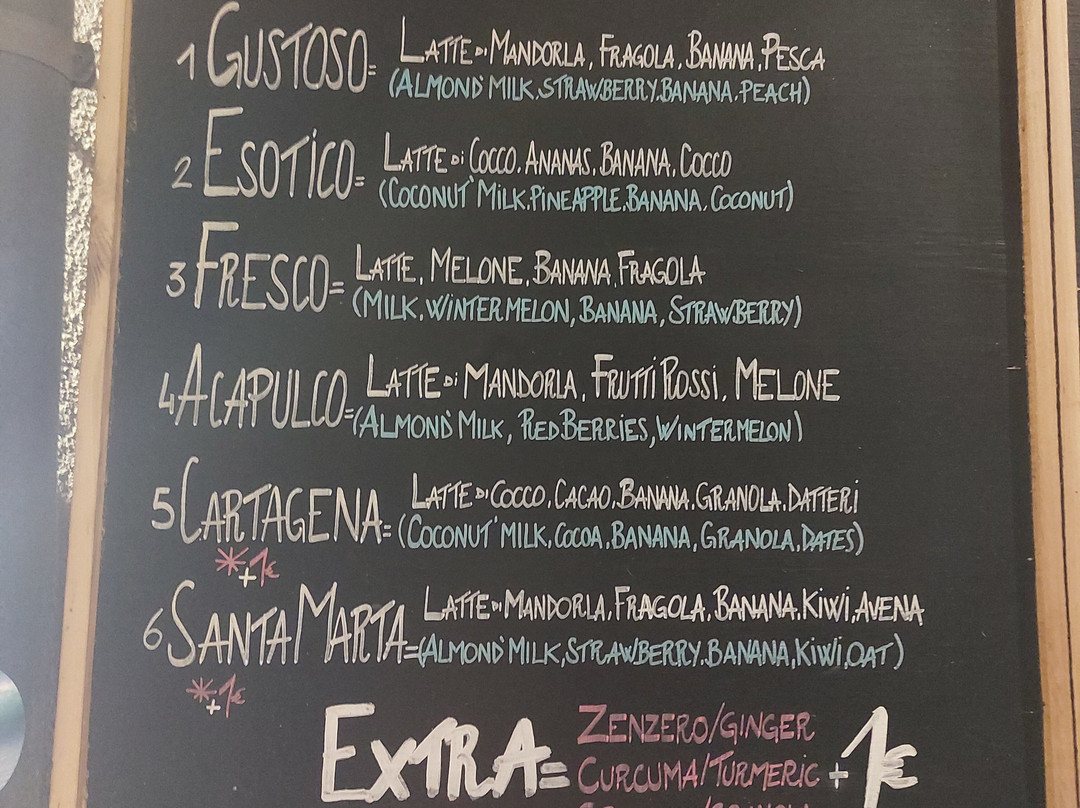 1 GUSTOSO= LATTE DI MANDORLA, FRAGOLA, BANANA, PESCA
(ALMOND MILK, STRAWBERRY, BANANA, PEACH)
2 ESOTICO= LATTE DI COCCO, ANANAS, BANANA, COCCO
(COCONUT MILK, PINEAPPLE, BANANA, COCONUT)
3 FRESCO= LATTE, MELONE, BANANA, FRAGOLA
(MILK, WINTER MELON, BANANA, STRAWBERRY)
4 ACAPULCO= LATTE DI MANDORLA, FRUTTI ROSSI, MELONE
(ALMOND MILK, RED BERRIES, WINTERMELON)
5 CARTAGENA= LATTE DI COCCO, CACAO, BANANA, GRANOLA, DATTERI
(COCONUT MILK, COCOA, BANANA, GRANOLA, DATES)
*+1€
6 SANTA MARTA= LATTE DI MANDORLA, FRAGOLA, BANANA, KIWI, AVENA
(ALMOND MILK, STRAWBERRY, BANANA, KIWI, OAT)
*+1€
EXTRA= ZENZERO/GINGER
CURCUMA/TURMERIC +1€